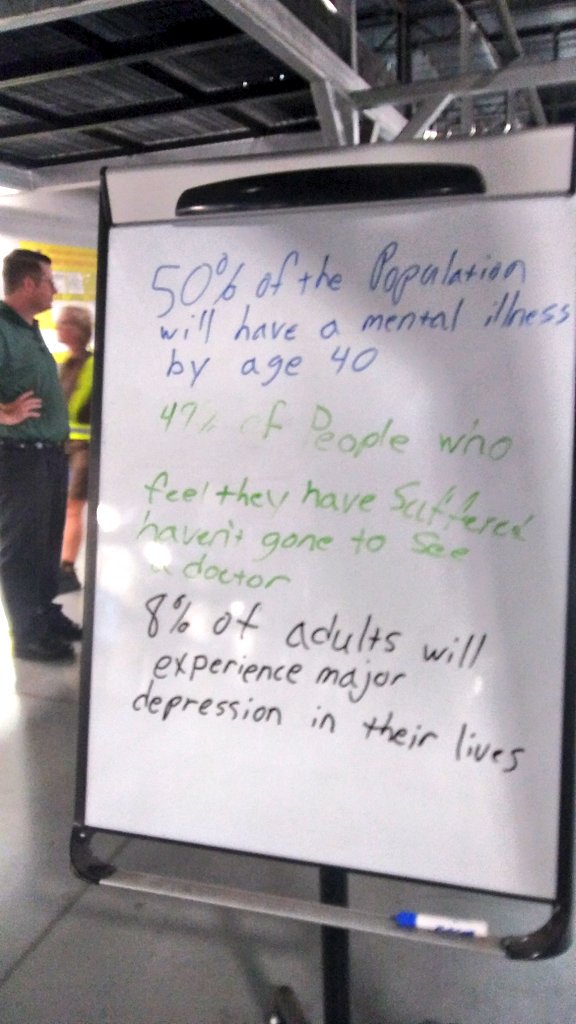 50% of the Population
will have a mental illness
by age 40
of People who
feel they have Suffered
haven't gone to See
a doctor
8% of adults will
experience major
depression in their lives